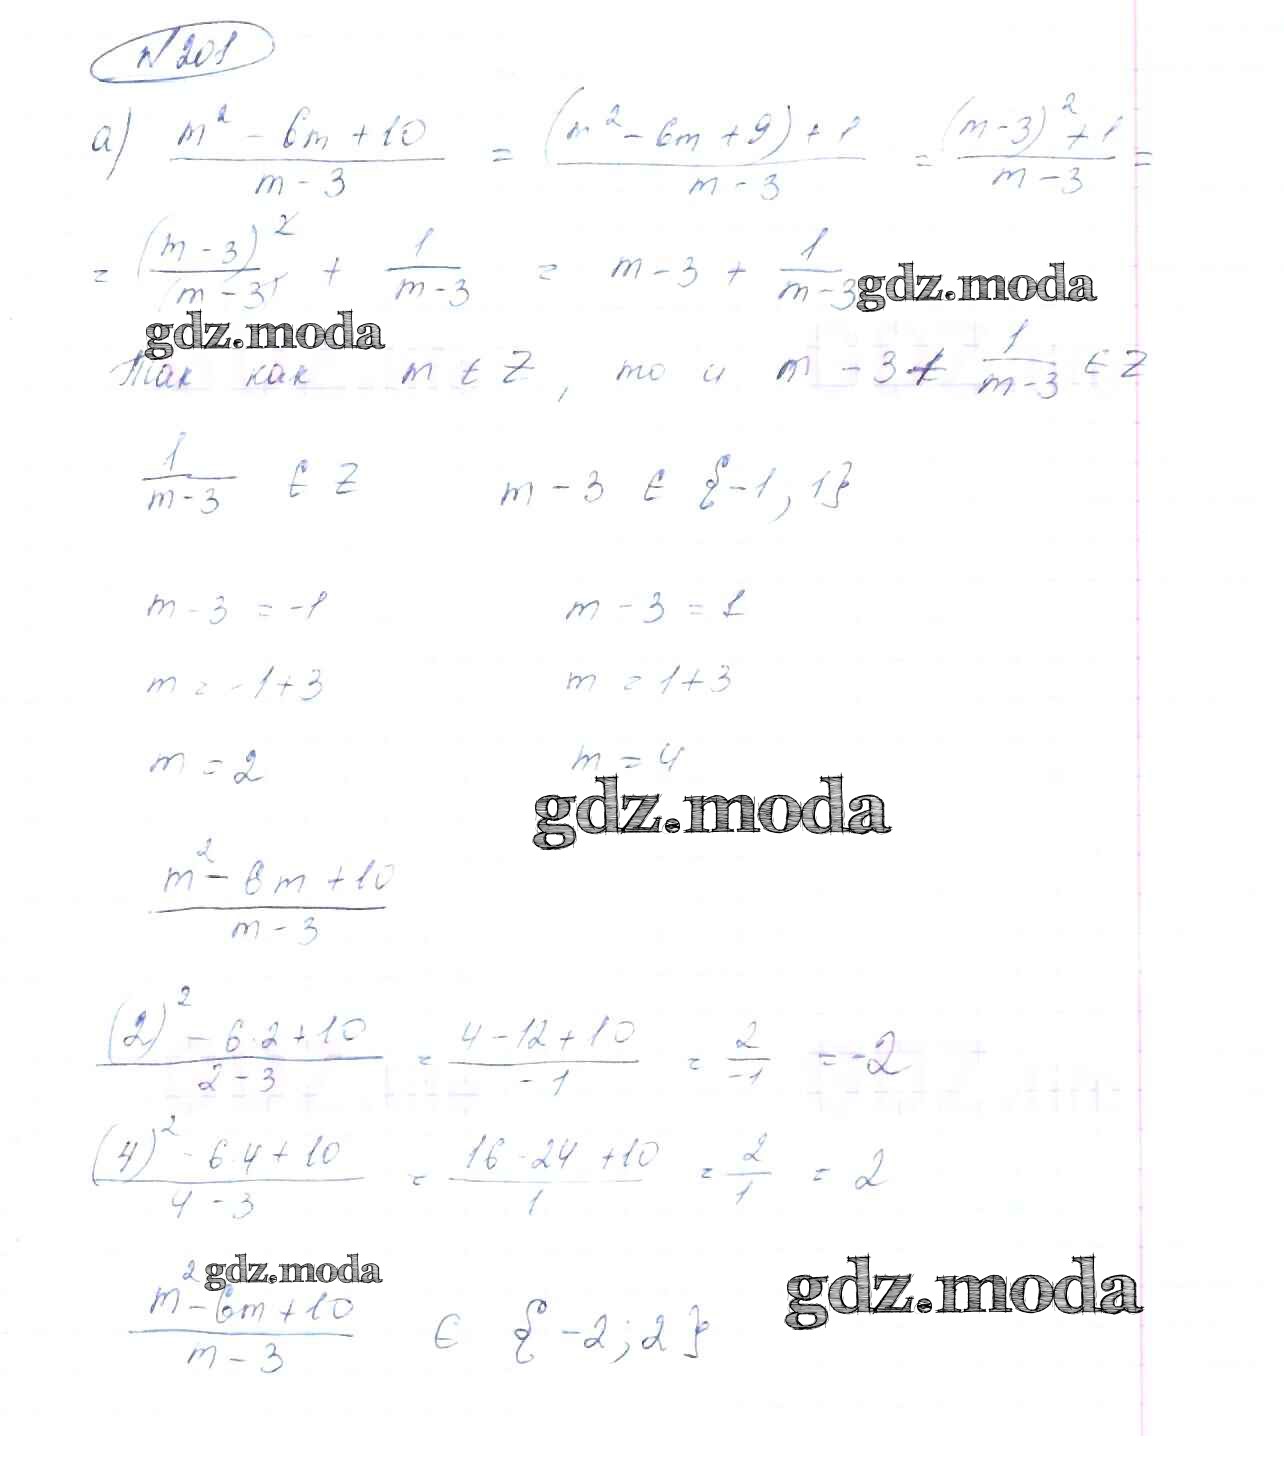 N 201
а) (m² - 6m + 10)/(m - 3) = ((m² - 6m + 9) + 1)/(m - 3) = ((m-3)² + 1)/(m - 3) =
= (m - 3)²/(m - 3) + 1/(m - 3) = m - 3 + 1/(m - 3)
gdz.moda
gdz.moda
Так как m ∈ Z, то и m - 3 + 1/(m - 3) ∈ Z
1/(m - 3) ∈ Z m - 3 ∈ {-1, 1}
m - 3 = -1 m - 3 = 1
m = -1 + 3 m = 1 + 3
m = 2 m = 4
gdz.moda
(m² - 6m + 10)/(m - 3)
((2)² - 6·2 + 10)/(2 - 3) = (4 - 12 + 10)/(-1) = 2/(-1) = -2
((4)² - 6·4 + 10)/(4 - 3) = (16 - 24 + 10)/1 = 2/1 = 2
gdz.moda
(m² - 6m + 10)/(m - 3) ∈ {-2; 2}
gdz.moda